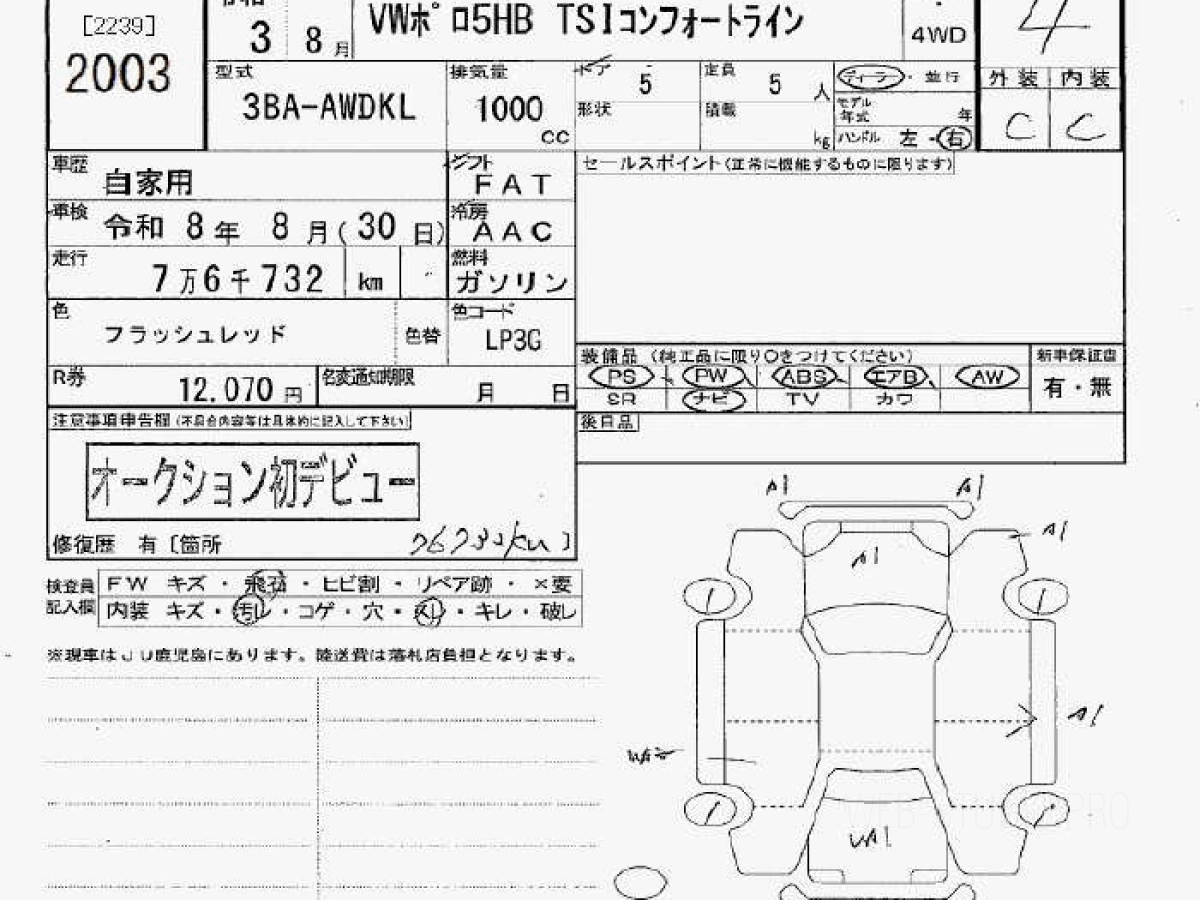 [2239]
2003
令和
3 8月
VWポロ5HB TSIコンフォートライン
4WD
4
型式
3BA-AWDKL
排気量
1000
cc
ドア 5
形状
定員 5 人
積載 kg
ディーラー・並行
モデル年式 年
ハンドル 左・右
外装 内装
C C
車歴
自家用
シフト
FAT
セールスポイント(正常に機能するものに限ります)
車検
令和 8年 8月(30日)
冷房
AAC
走行
7万6千732 km
燃料
ガソリン
色
フラッシュレッド
色替
色コード
LP3G
装備品 (純正品に限り○をつけてください)
PS PW ABS エアB AW
SR ナビ TV カワ
新車保証書
有・無
R券
12,070円
名変通知期限
月 日
後日品
注意事項申告欄(不具合内容等は具体的に記入して下さい)
オークション初デビュー
修復歴 有〔箇所 76732km〕
検査員記入欄
FW キズ・飛石・ヒビ割・リペア跡・×要
内装 キズ・汚れ・コゲ・穴・スレ・キレ・破レ
※現車はJU鹿児島にあります。陸送費は落札店負担となります。
A1 A1
A1
A1
A1
WA1